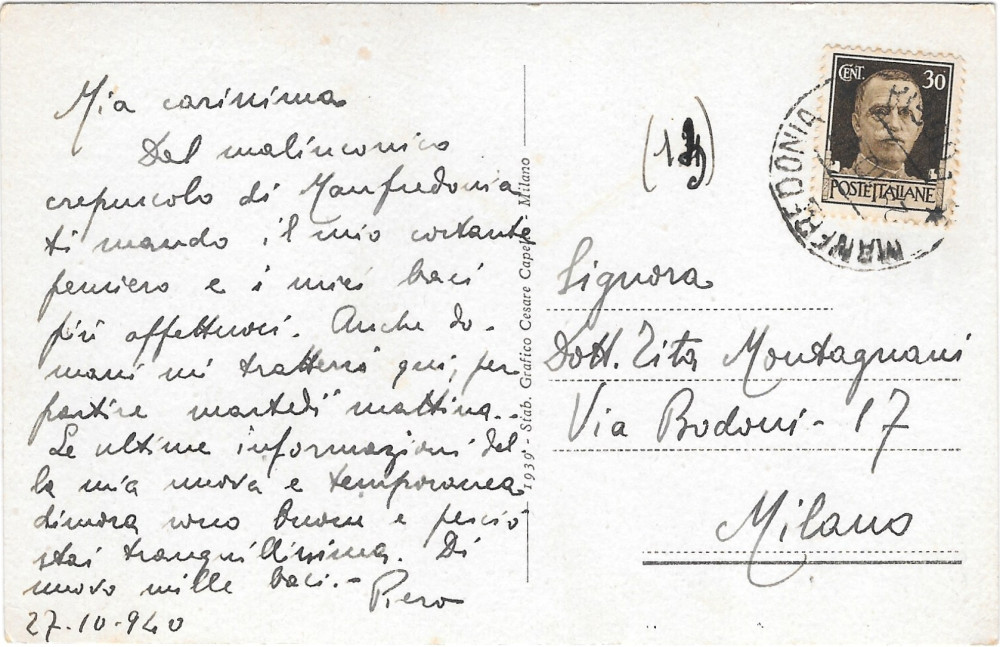 Mia carissima
Dal malinconico
crepuscolo di Manfredonia
ti mando il mio costante
pensiero e i miei baci
più affettuosi. Anche do-
mani mi tratterrò qui, per
partire martedì mattina.
Le ultime informazioni del-
la mia nuova e temporanea
dimora sono buone e perciò
stai tranquillissima. Di
nuovo mille baci.-
Piero
27-10-940
1939 - Stab. Grafico Cesare Capello - Milano
CENT. 30
POSTE ITALIANE
MANFREDONIA
Signora
Dott. Zita Montagnani
Via Bodoni - 17
Milano